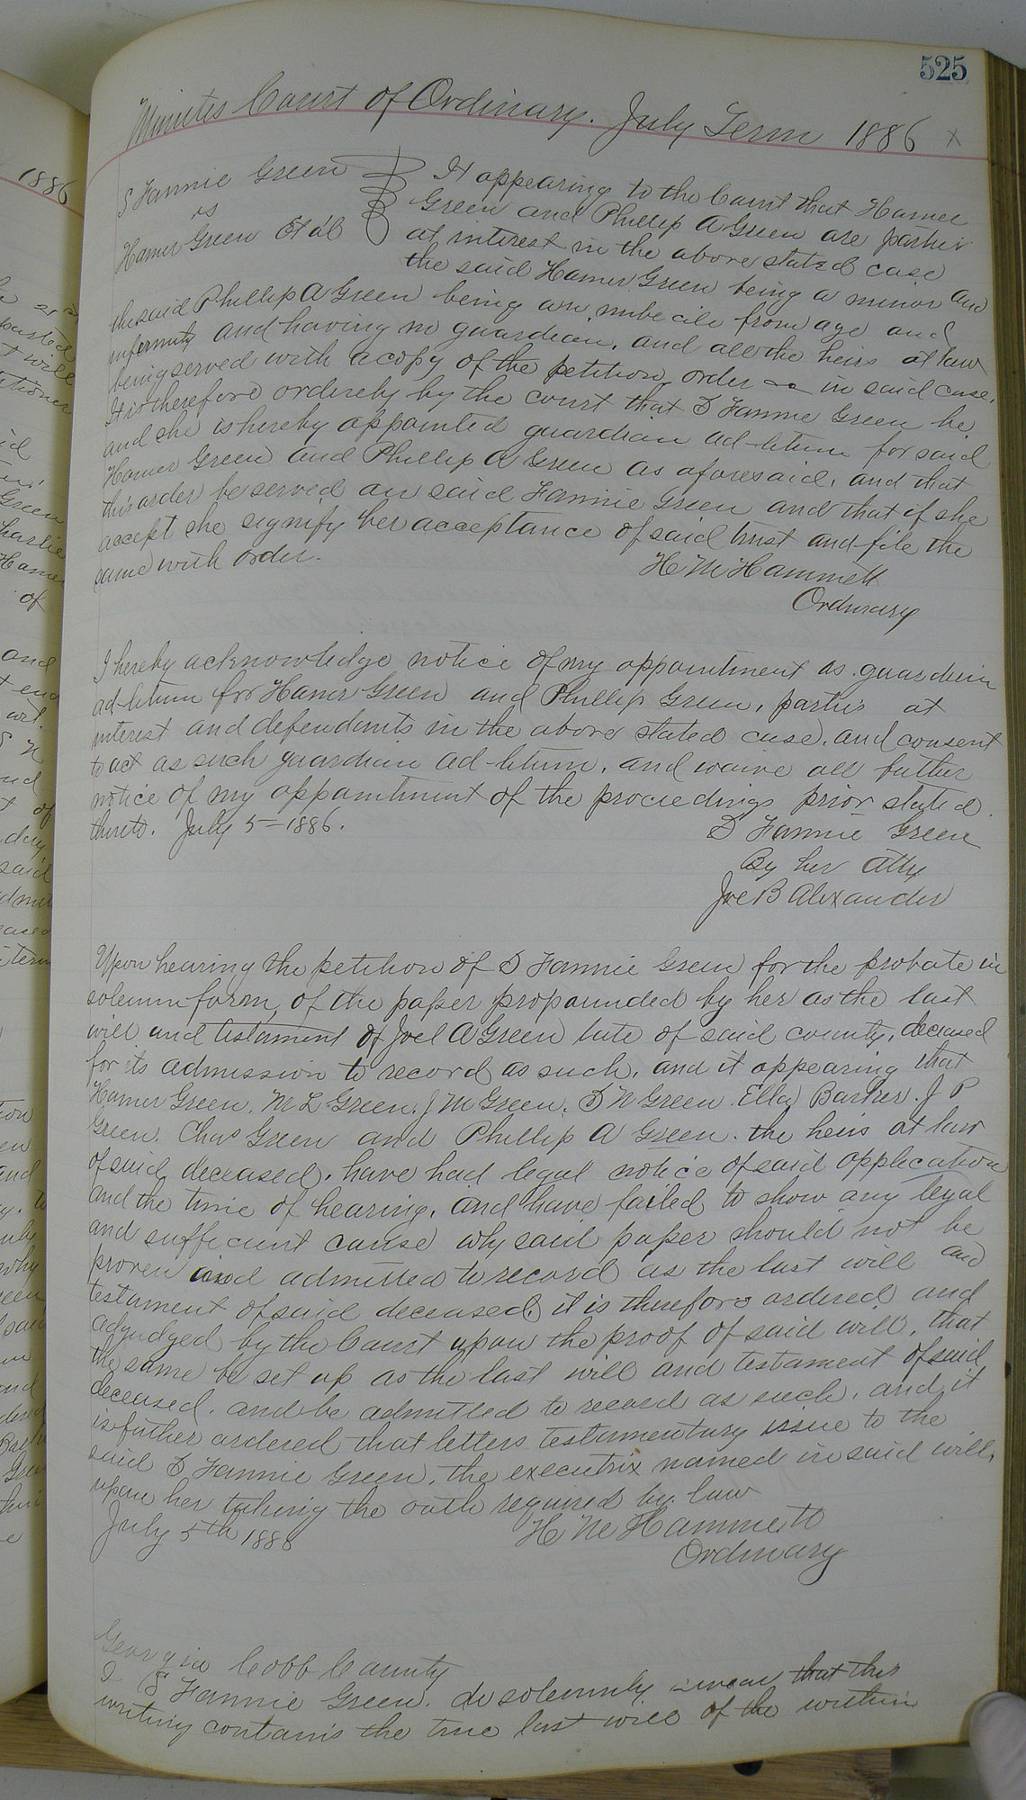 525
Minutes Court of Ordinary. July Term 1886 X
S Fannie Green
vs
Hamer Green Et al
It appearing to the Court that Hamer
Green and Phillip A Green are parties
at interest in the above stated case
the said Hamer Green being a minor and
the said Phillip A Green being an imbecile from age and
infirmity and having no guardian, and all the heirs at law
being served with a copy of the petition order in said case.
It is therefore ordered by the court that S Fannie Green be
and she is hereby appointed guardian ad-litum for said
Hamer Green and Phillip A Green as aforesaid, and that
this order be served on said Fannie Green and that if she
accept she signify her acceptance of said trust and file the
same with order.
H M Hammett
Ordinary
I hereby acknowledge notice of my appointment as guardian
ad-litum for Hamer Green and Phillip Green, parties at
interest and defendants in the above stated case, and consent
to act as such guardian ad-litum, and waive all futher
notice of my appointment of the proceedings prior stated
thereto. July 5-1886.
S Fannie Green
By her Atty
Joe B Alexander
Upon hearing the petition of S Fannie Green for the probate in
solemn form, of the paper propounded by her as the last
will and testament of Joel A Green late of said county, deceased
for its admission to record as such, and it appearing that
Hamer Green. M L Green. J M Green. S N Green. Ella Barker. J P
Green. Chas Green and Phillip A Green. the heirs at law
of said deceased, have had legal notice of said application
and the time of hearing, and have failed to show any legal
and sufficient cause why said paper should not be
proven and admitted to record as the last will and
testament of said deceased, it is therefore ordered and
adjudged by the Court upon the proof of said will, that
the same be set up as the last will and testament of said
deceased. and be admitted to record as such, and it
is futher ordered that letters testamentary issue to the
said S Fannie Green, the executrix named in said will,
upon her taking the oath required by law
July 5th 1886
H M Hammett
Ordinary
Georgia Cobb County
I S Fannie Green. do solemnly swear that this
writing contains the true last will of the within